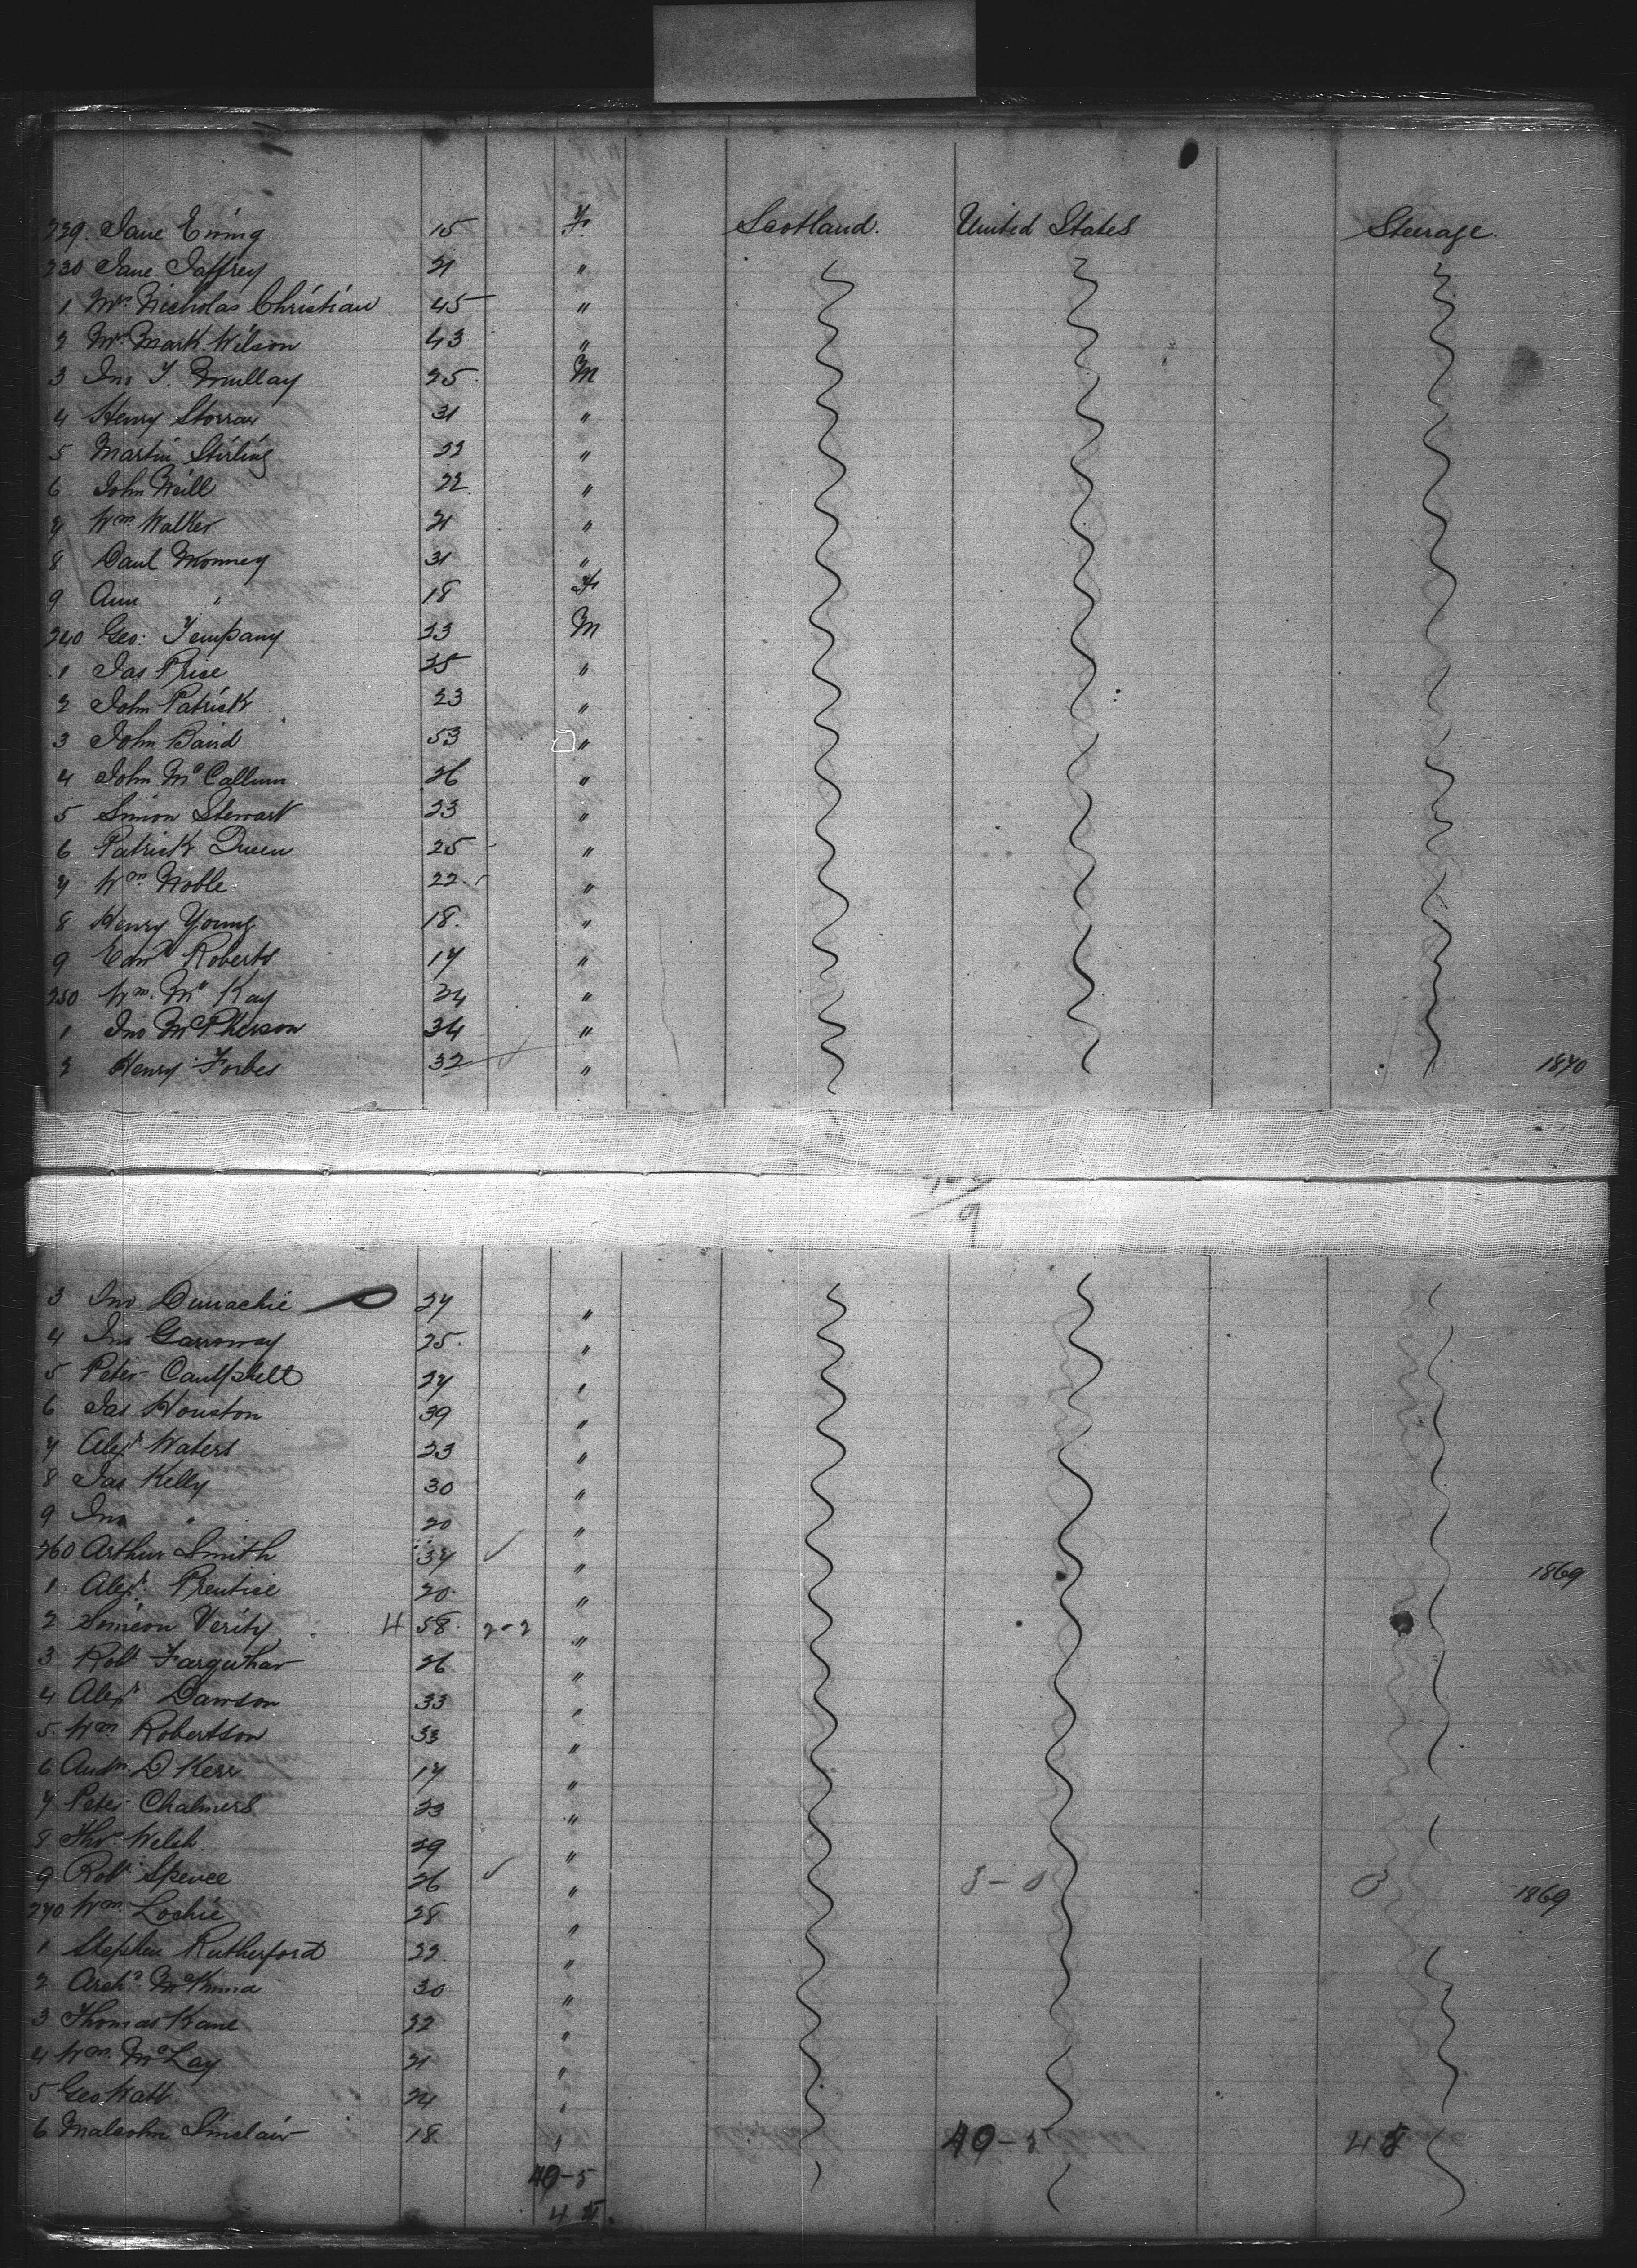 229. Jane Ewing 15 F. Scotland. United States Steerage.
230 Jane Jaffrey 21 "
1 Mrs Nicholas Christian 45 "
2 Mrs Mark Wilson 43 "
3 Jno T. Mullay 25. M
4 Henry Storrar 31 "
5 Martin Stirling 22 "
6 John Neill 22. "
7 Wm Walker 21 "
8 Paul Monney 31 "
9 Ann " 18 F
240 Geo: Tempany 23 M
1 Jas Price 35 "
2 John Patrick 23 "
3 John Baird 53 "
4 John McCallum 26 "
5 Simon Stewart 23 "
6 Patrick Queen 25 "
7 Wm Noble 22. "
8 Henry Young 18. "
9 Edwd Roberts 17 "
250 Wm. Mc Kay 24 "
1 Jno McPherson 34 "
2 Henry Forbes 32 " 1870
9
3 Jno Durrachie 27 "
4 Jno Garroway 25. "
5 Peter Campbell 27 "
6 Jas Houston 39 "
7 Alexr Waters 23 "
8 Jas Kelly 30 "
9 Jno " 20 "
260 Arthur Smith 37 ✓ " 1869
1 Alexr. Prentice 20. "
2 Simeon Verity 4 58. 2-2 "
3 Robt Farquhar 26 "
4 Alexr Dawson 33 "
5. Wm Robertson 33 "
6 Andw. D Kerr 17 "
7 Peter Chalmers 23 "
8 Thos. Welsh 29 "
9 Robt Spence 26 ✓ " 1869
270 Wm. Lockie 28 "
1 Stephen Rutherford 22. "
2 Archd. McKinna 30 "
3 Thomas Kane 22 "
4 Wm. McLay 21 "
5 Geo Watt 24 "
6 Malcolm Sinclair 18 " 40-5 45
40-5